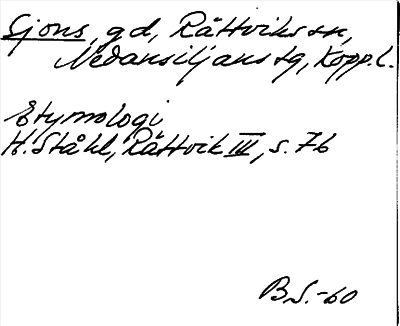 Sjons, gd, Rättviks sn,
Nedansiljans tg, Kopp.l.
Etymologi
H. Ståhl, Rättvik III, s. 76
B.S.-60